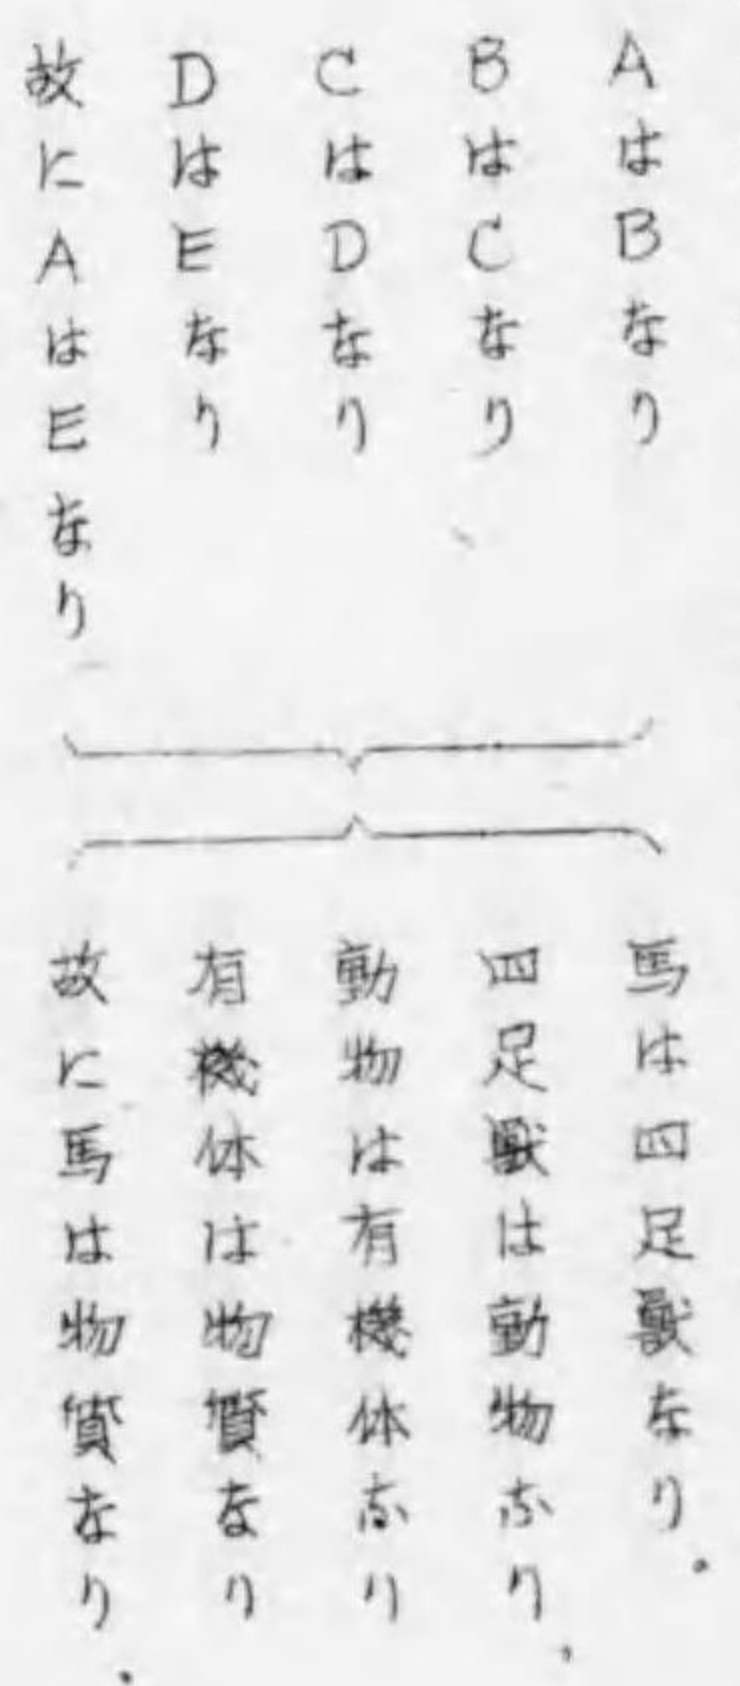 AはBなり
BはCなり
CはDなり
DはEなり
故にAはEなり
馬は四足獣なり。
四足獣は動物なり、
動物は有機体なり
有機体は物質なり
故に馬は物質なり。